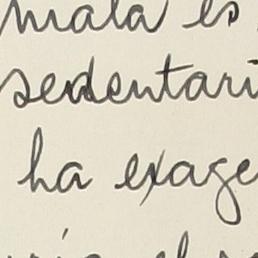 mala es
sedentari
ha exage